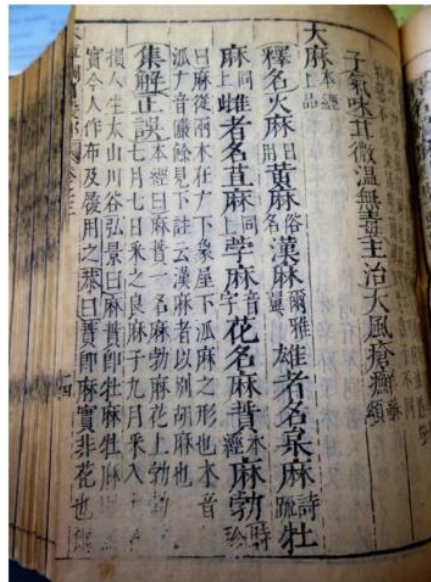 子氣味苷微溫無毒主治大風瘡癬頭
大麻本經上品
釋名火麻日用黃麻俗名漢麻爾雅翼雄者名枲麻詩疏牡
麻同上雌者名苴麻同上荸麻音字花名麻蕡本經麻勃時珍
曰麻從兩木在广下象屋下派麻之形也木音
派广音儼餘見下註云漢麻者以別胡麻也
集解正誤本經曰麻蕡一名麻勃麻花上勃勃
七月七日采之良麻子九月采入土
損人生太山川谷弘景曰麻蕡即牡麻牡麻則
實今人作布及履用之恭曰蕡即麻實非花也